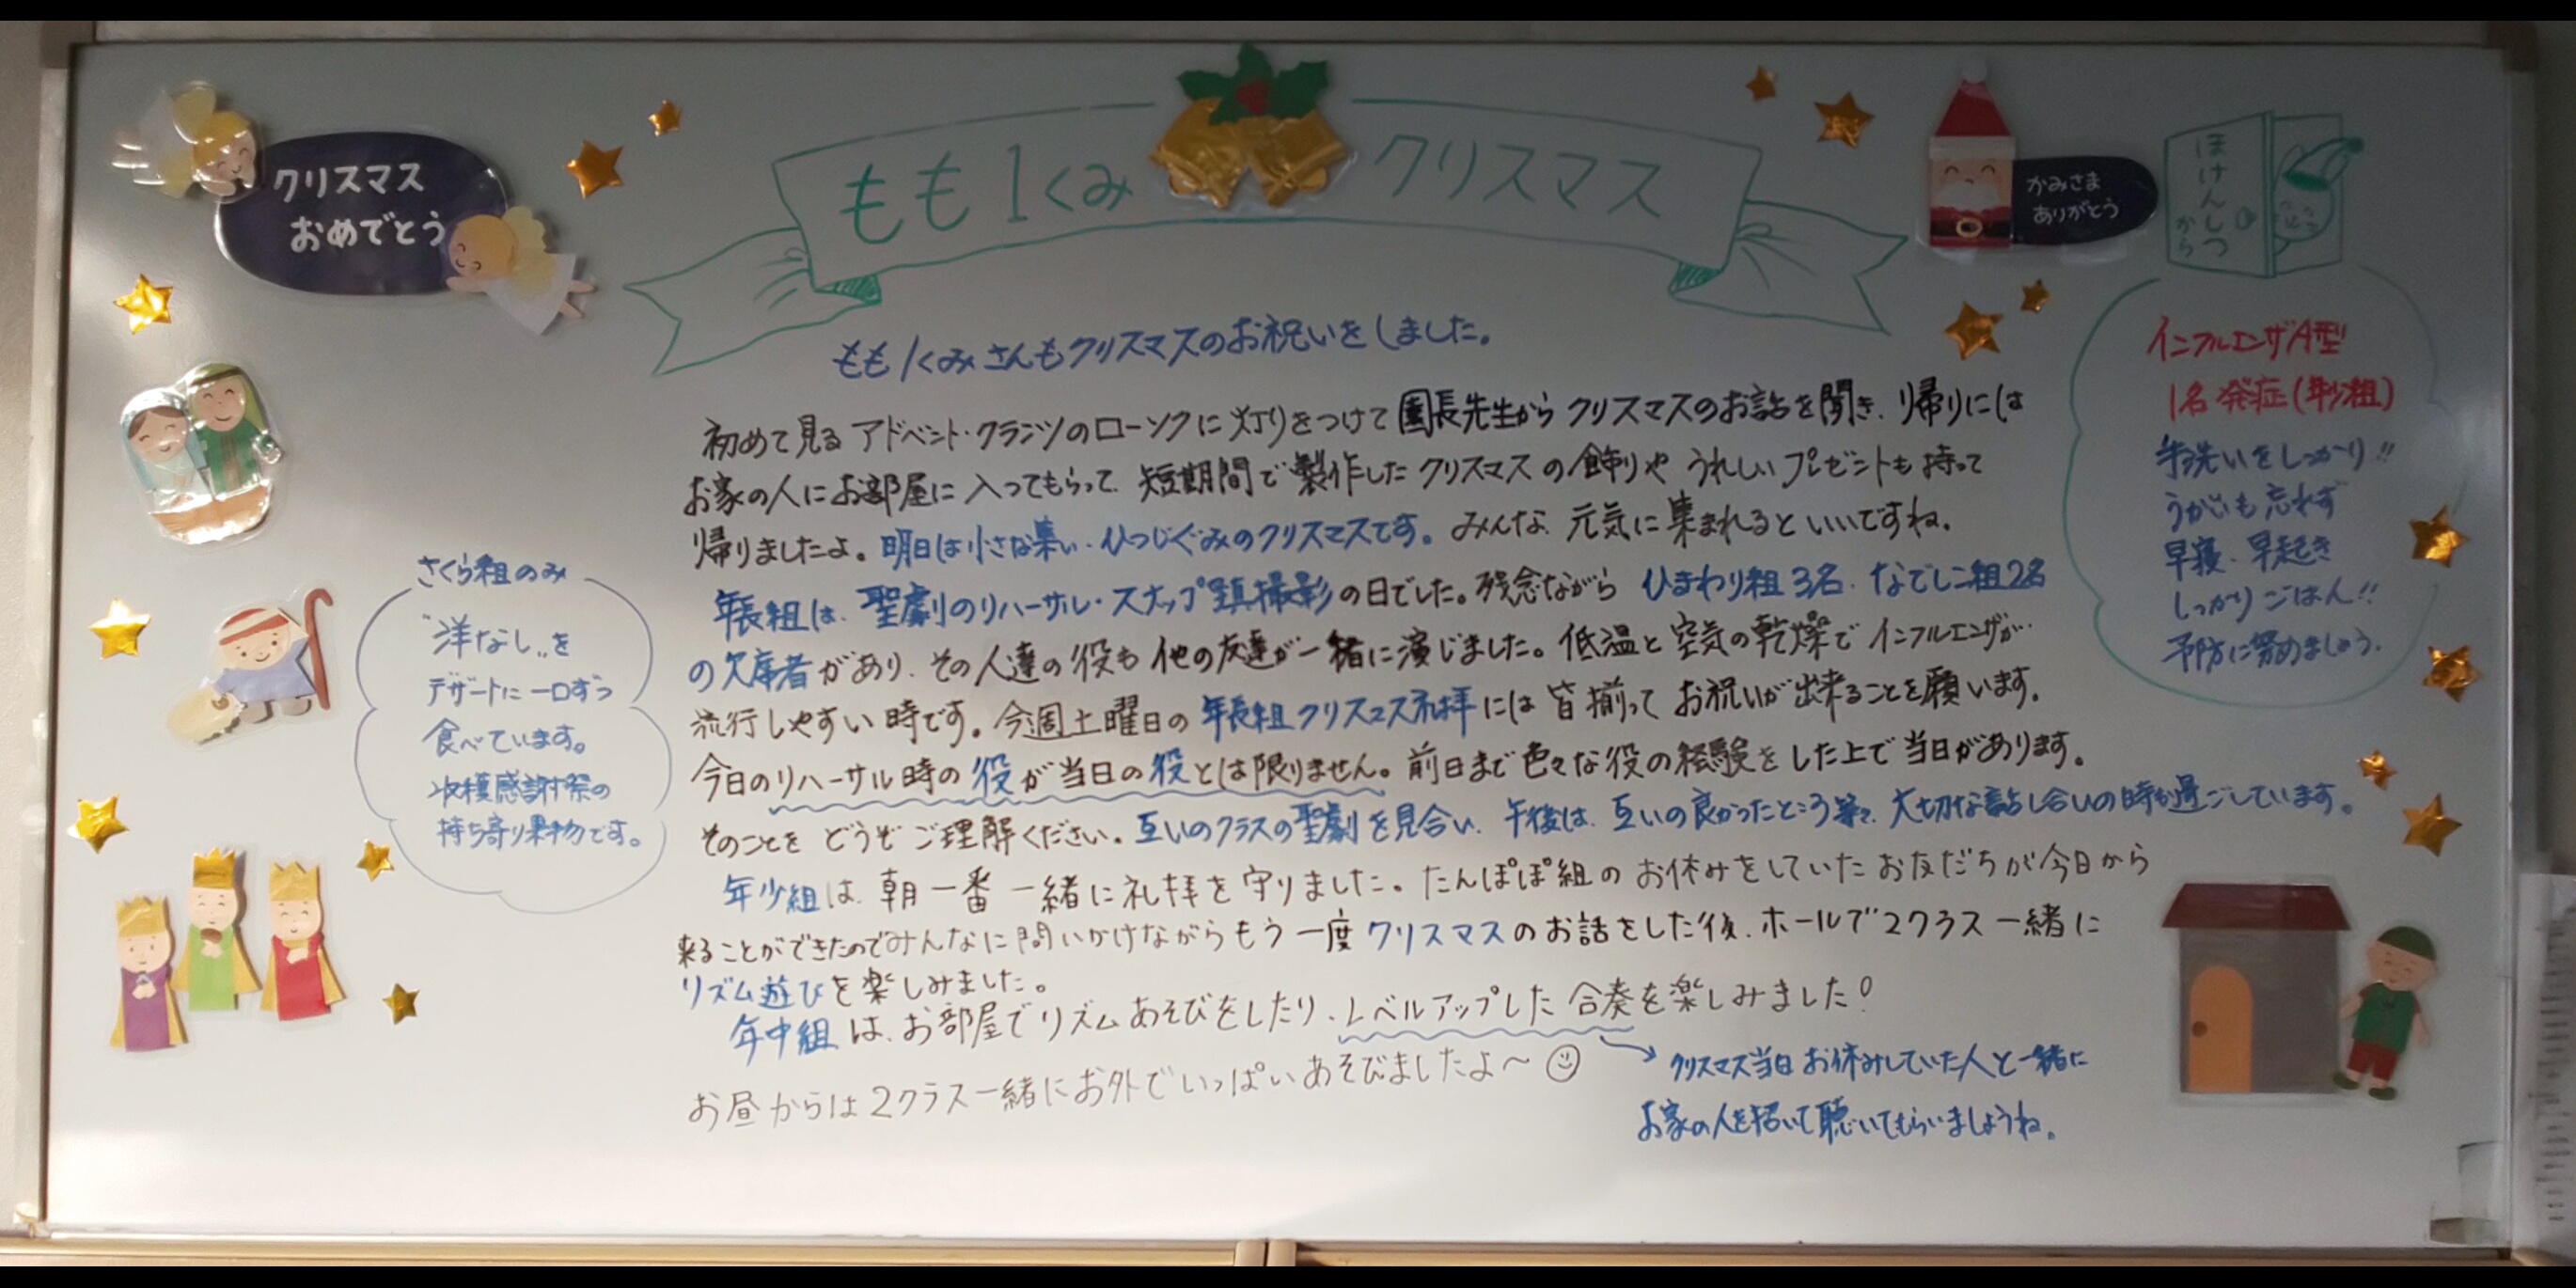 クリスマス
おめでとう
もも1くみ クリスマス
かみさま
ありがとう
ほけんしつ
から
インフルエンザA型
1名 発症(年少組)
手洗いをしっかり!!
うがいも忘れず
早寝、早起き
しっかりごはん!!
予防に努めましょう。
さくら組のみ
"洋なし"を
デザートに一口ずつ
食べています。
収穫感謝祭の
持ち寄り果物です。
もも1くみさんもクリスマスのお祝いをしました。
初めて見るアドベント・クランツのローソクに灯りをつけて園長先生からクリスマスのお話を聞き、帰りには
お家の人にお部屋に入ってもらって、短期間で製作したクリスマスの飾りやうれしいプレゼントも持って
帰りましたよ。明日は小さな集い・ひつじぐみのクリスマスです。みんな、元気に集まれるといいですね。
年長組は、聖劇のリハーサル・スナップ写真撮影の日でした。残念ながら ひまわり組3名、なでしこ組2名
の欠席者があり、その人達の役も他の友達が一緒に演じました。低温と空気の乾燥でインフルエンザが
流行しやすい時です。今週土曜日の年長組クリスマス礼拝には皆揃ってお祝いが出来ることを願います。
今日のリハーサル時の役が当日の役とは限りません。前日まで色々な役の経験をした上で当日があります。
そのことをどうぞご理解ください。互いのクラスの聖劇を見合い、午後は、互いの良かったところ等々、大切な話し合いの時を過ごしています。
年少組は、朝一番一緒に礼拝を守りました。たんぽぽ組のお休みをしていたお友だちが今日から
来ることができたのでみんなに問いかけながらもう一度クリスマスのお話をした後、ホールで2クラス一緒に
リズム遊びを楽しみました。
年中組は、お部屋でリズムあそびをしたり、レベルアップした合奏を楽しみました!
クリスマス当日お休みしていた人と一緒に
お家の人を招いて聴いてもらいましょうね。
お昼からは2クラス一緒にお外でいっぱいあそびましたよ〜